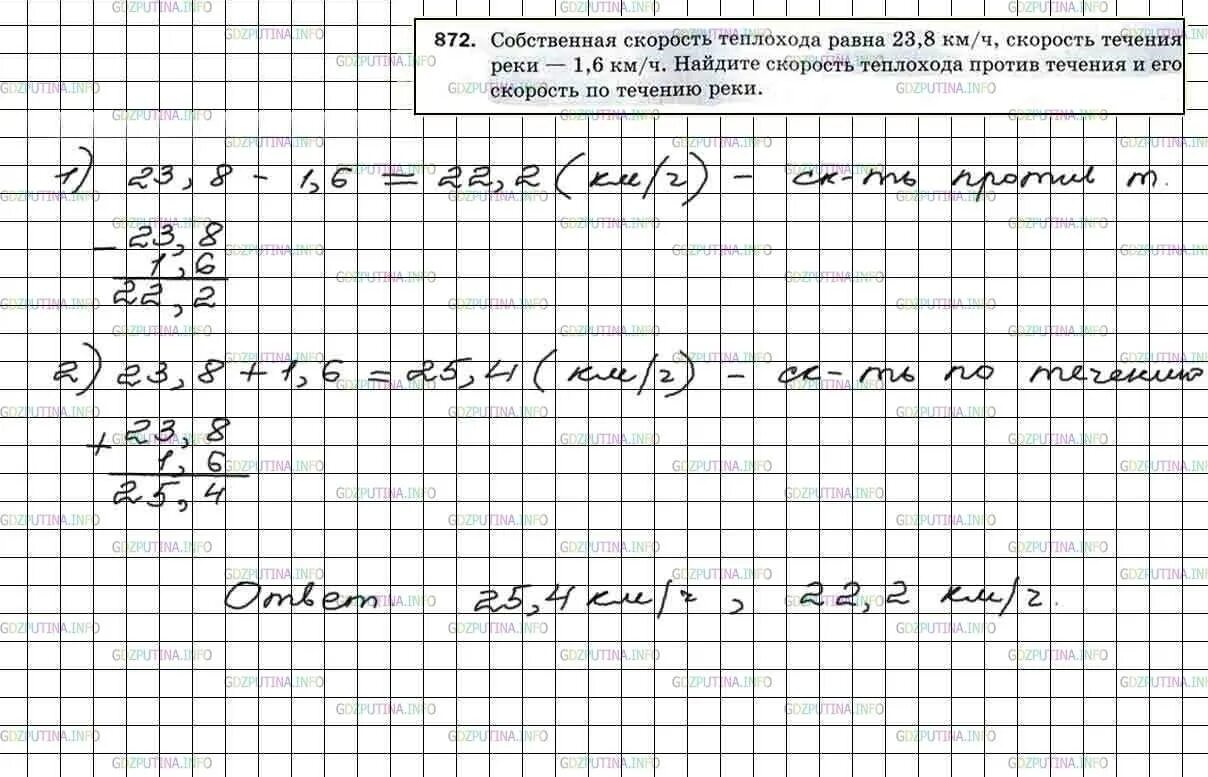 872. Собственная скорость теплохода равна 23,8 км/ч, скорость течения
реки — 1,6 км/ч. Найдите скорость теплохода против течения и его
скорость по течению реки.
1) 23,8 - 1,6 = 22,2 (км/ч) - ск-ть против т.
- 23,8
1,6
22,2
2) 23,8 + 1,6 = 25,4 (км/ч) - ск-ть по течению
+ 23,8
1,6
25,4
Ответ 25,4 км/ч, 22,2 км/ч.
GDZPUTINA.INFO